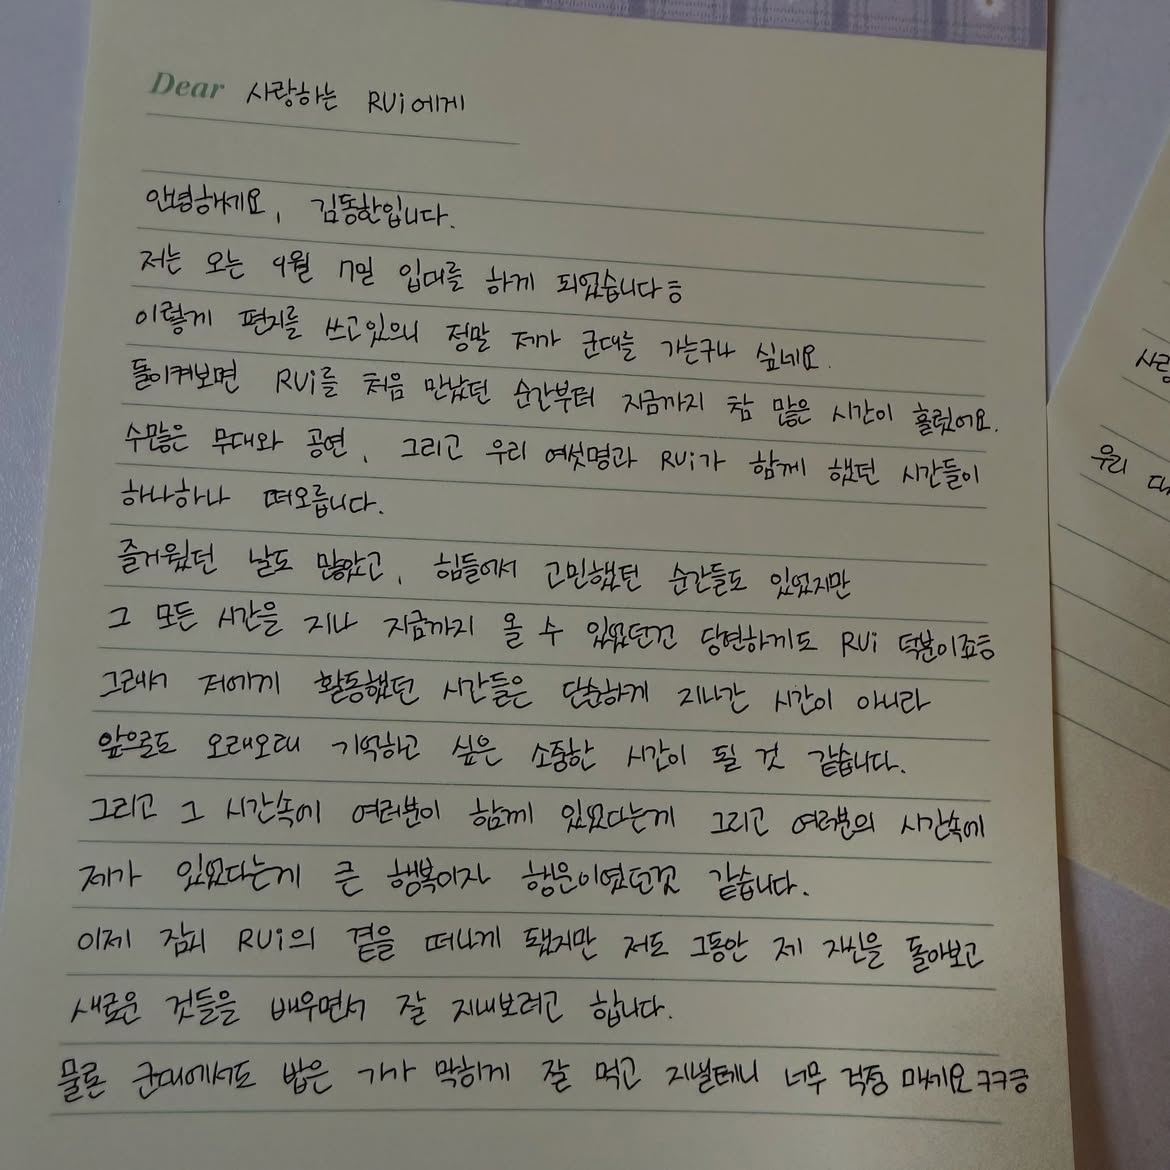 Dear 사랑하는 RUi에게
안녕하세요, 김동한입니다.
저는 오는 9월 7일 입대를 하게 되었습니다ㅎ
이렇게 편지를 쓰고있으니 정말 제가 군대를 가는구나 싶네요.
돌이켜보면 RUi를 처음 만났던 순간부터 지금까지 참 많은 시간이 흘렀어요.
수많은 무대와 공연, 그리고 우리 여섯명과 RUi가 함께 했던 시간들이
하나하나 떠오릅니다.
즐거웠던 날도 많았고, 힘들어서 고민했던 순간들도 있었지만
그 모든 시간을 지나 지금까지 올 수 있었던건 당연하게도 RUi 덕분이죠ㅎ
그래서 저에게 활동했던 시간들은 단순하게 지나간 시간이 아니라
앞으로도 오래오래 기억하고 싶은 소중한 시간이 될 것 같습니다.
그리고 그 시간속에 여러분이 함께 있었다는게 그리고 여러분의 시간속에
제가 있었다는게 큰 행복이자 행운이였던것 같습니다.
이제 잠시 RUi의 곁을 떠나게 됐지만 저도 그동안 제 자신을 돌아보고
새로운 것들을 배우면서 잘 지내보려고 합니다.
물론 군대에서도 밥은 기가 막히게 잘 먹고 지낼테니 너무 걱정 마세요ㅋㅋㅎ
사랑
우리